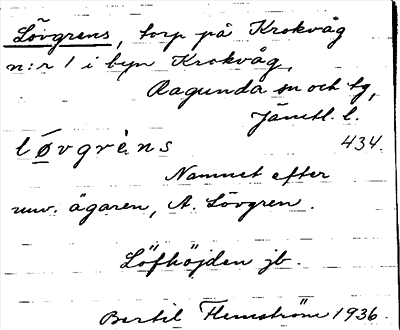 Lövgrens, torp på Krokvåg
n:r 1 i byn Krokvåg,
Ragunda sn och tg,
Jämtl. l.
løvgrèns 434.
Namnet efter
nuv. ägaren, A. Lövgren.
Löfhöjden jb.
Bertil Flemström 1936.